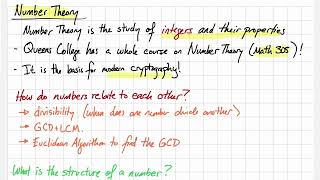 Number Theory
- Number Theory is the study of integers and their properties
- Queens College has a whole course on Number Theory (Math 305)!
- It is the basis for modern cryptography!
How do numbers relate to each other?
→ divisibility (when does one number divide another)
→ GCD + LCM.
→ Euclidean Algorithm to find the GCD
What is the structure of a number?